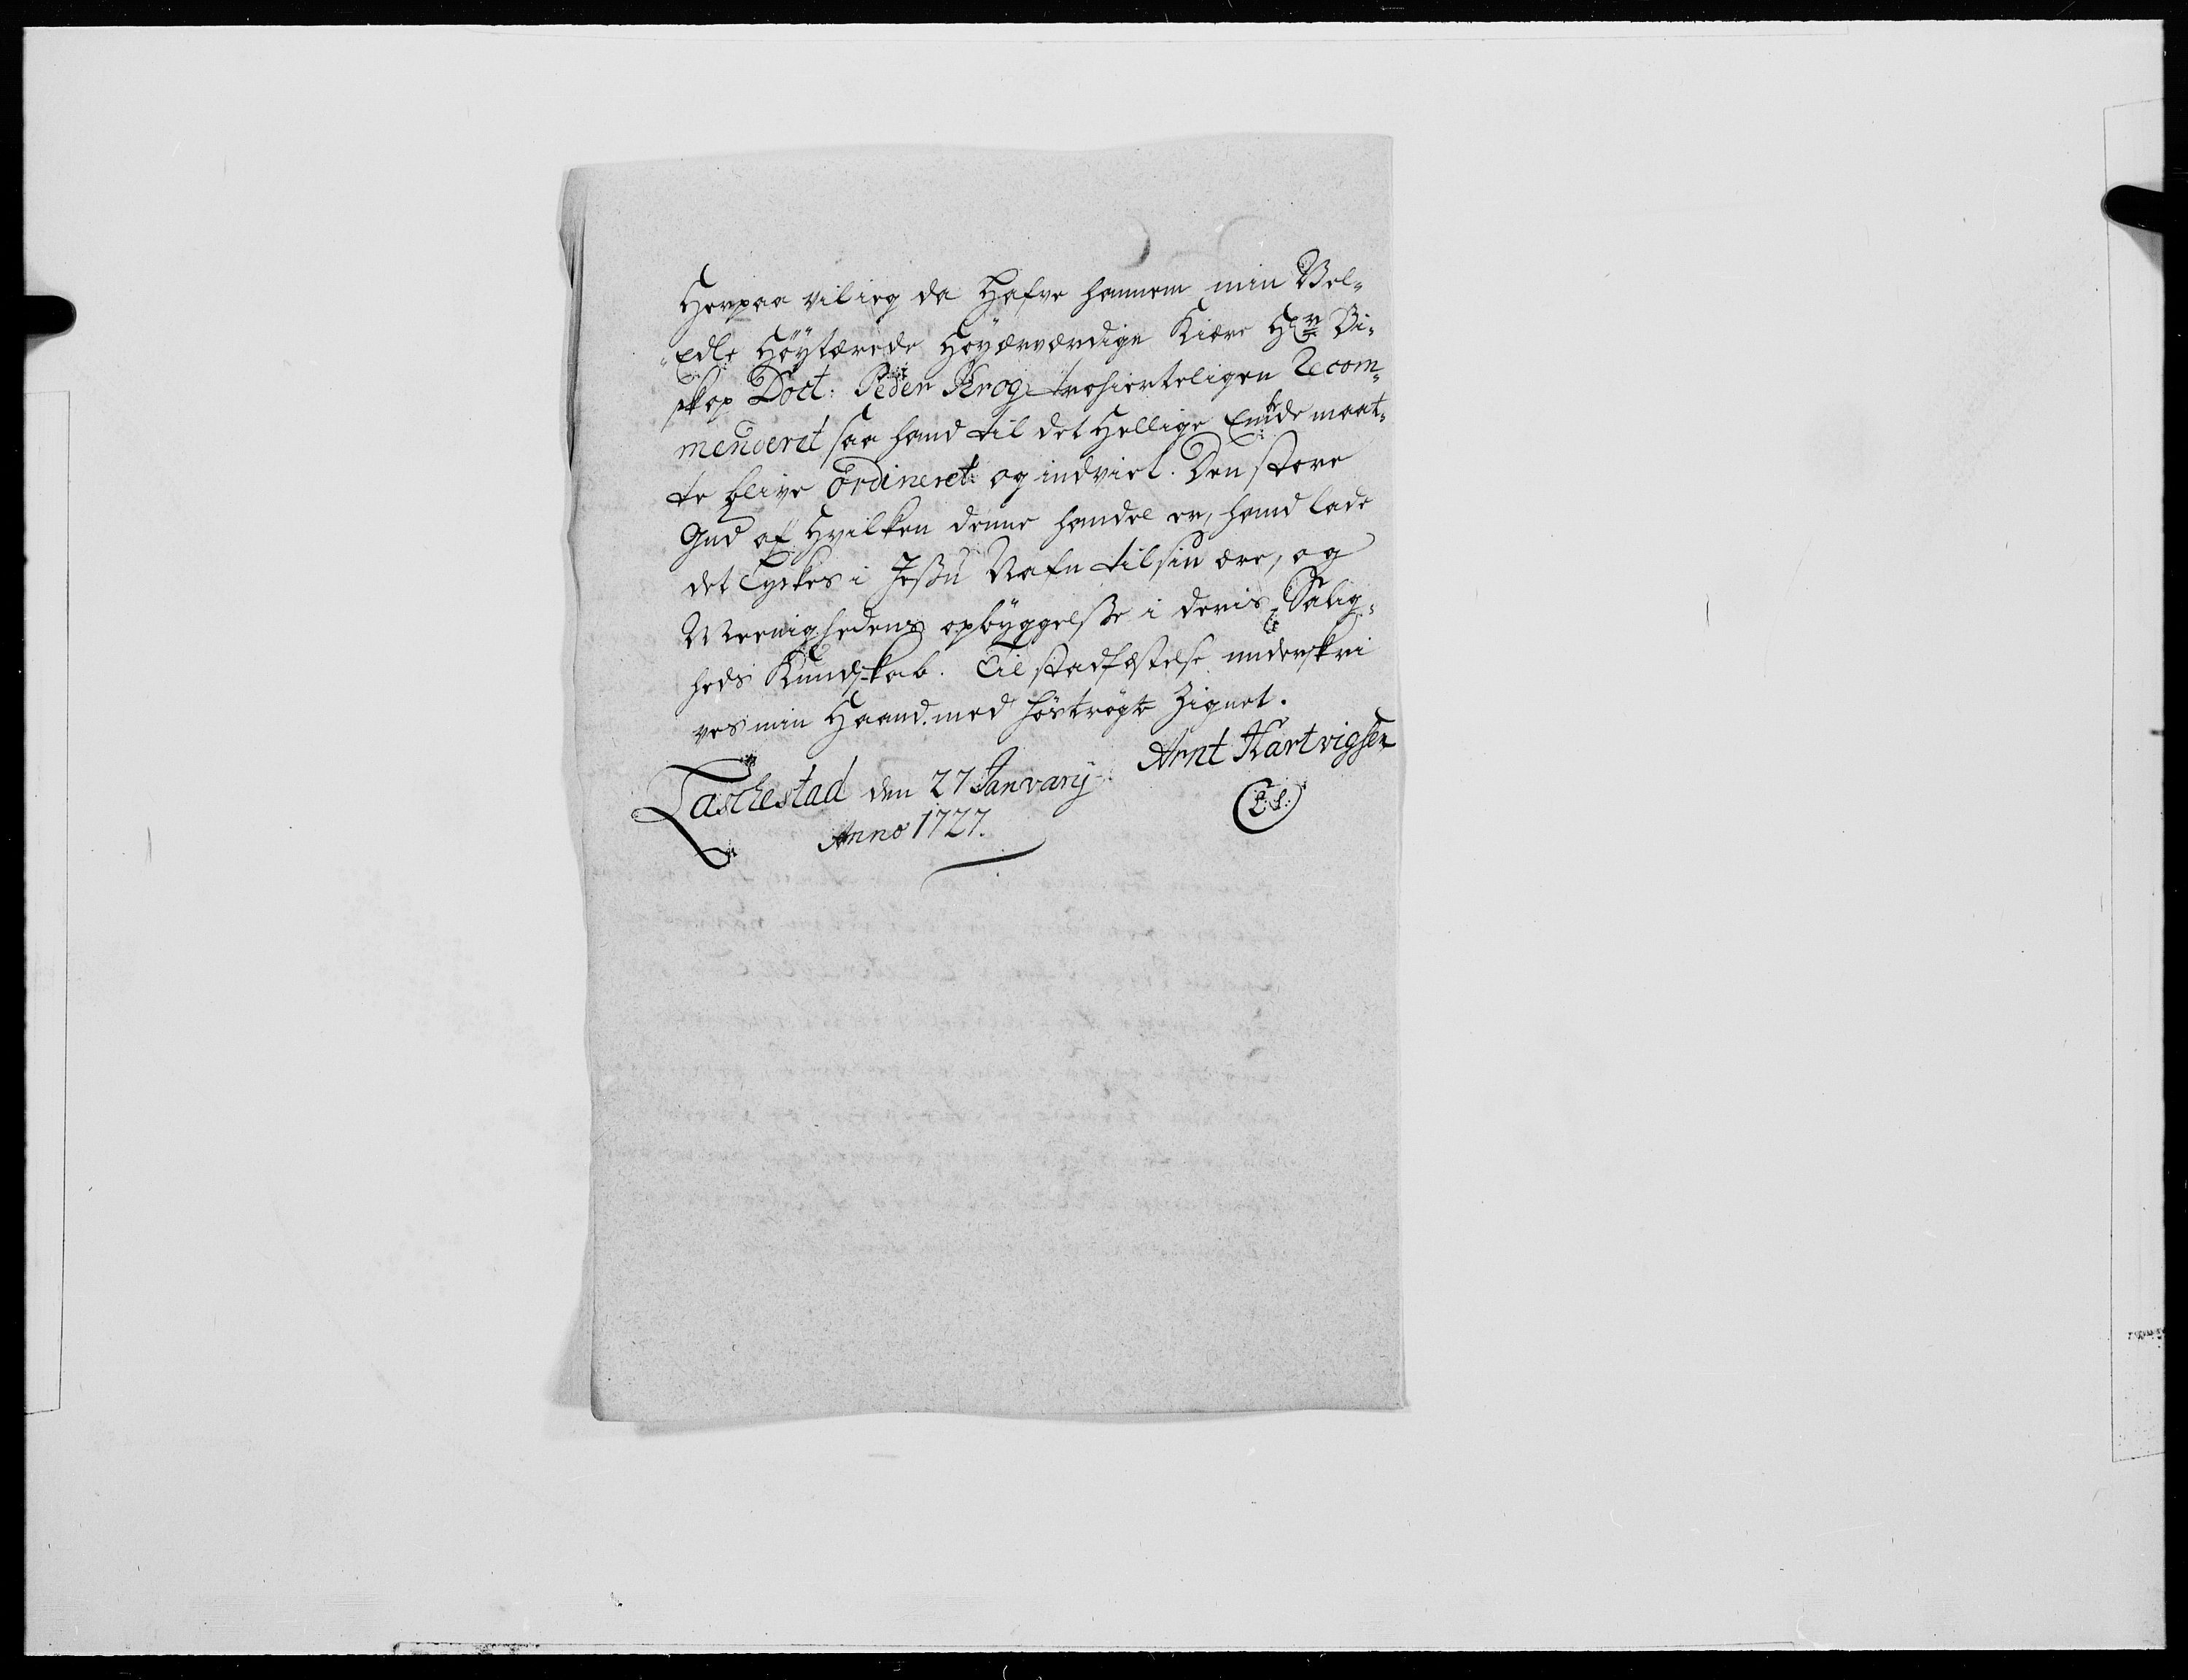 Herpaa vil ieg da Hafve hannem min Vel-
Edle Høytærede Høyærværdige Kiære Hr Bi-
skop Doct: Peder Krog trohierteligen Recom-
menderet saa hand til det Hellige Embde maat-
te blive ordineret og indviet. Den store
Gud af Hvilken denne handel er, hand lade
det Lyckes i Jesu Nafn til sin ære, og
Meenighedens opbyggelsse i deris Salig-
heds Kundskab. Til stadfæstelse underskri
ves min Haand med hostrøgte Zignet.
Arnt Hartvigsen
Laschestad den 27 January
Anno 1727.
L.S.